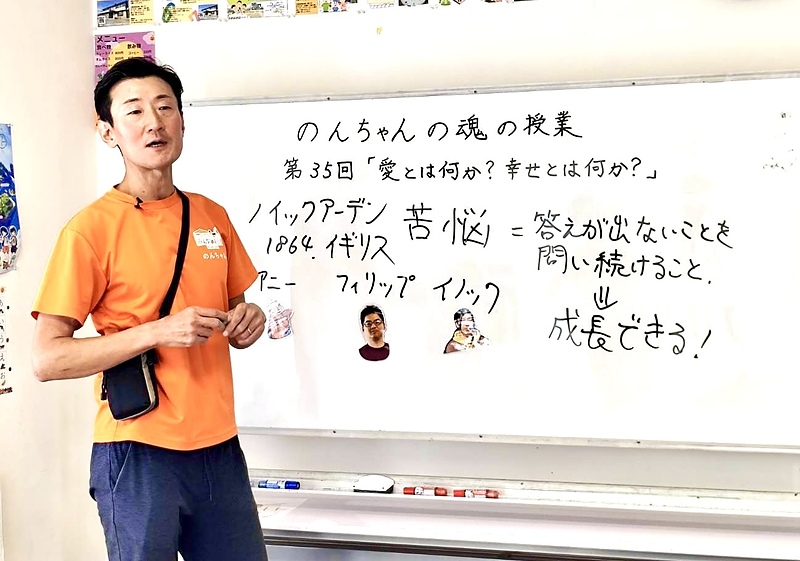 メニュー
食べ物 飲み物
のんちゃんの魂の授業
第35回「愛とは何か?幸せとは何か?」
ノイックアーデン
1864.イギリス
アニー フィリップ イノック
苦悩 = 答えが出ないことを
問い続けること.
⇓
成長できる!
のんちゃん